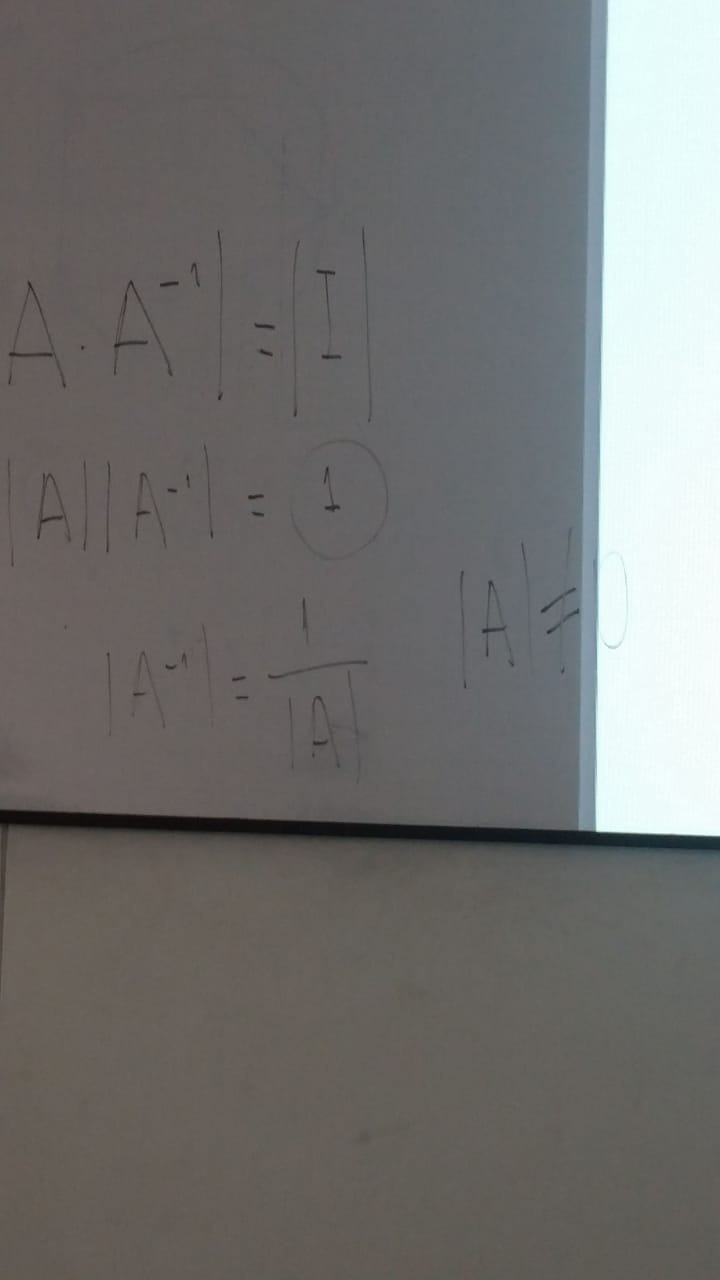 A · A⁻¹| = |I|
|A||A⁻¹| = 1
|A⁻¹| = 1/|A|
|A| ≠ 0